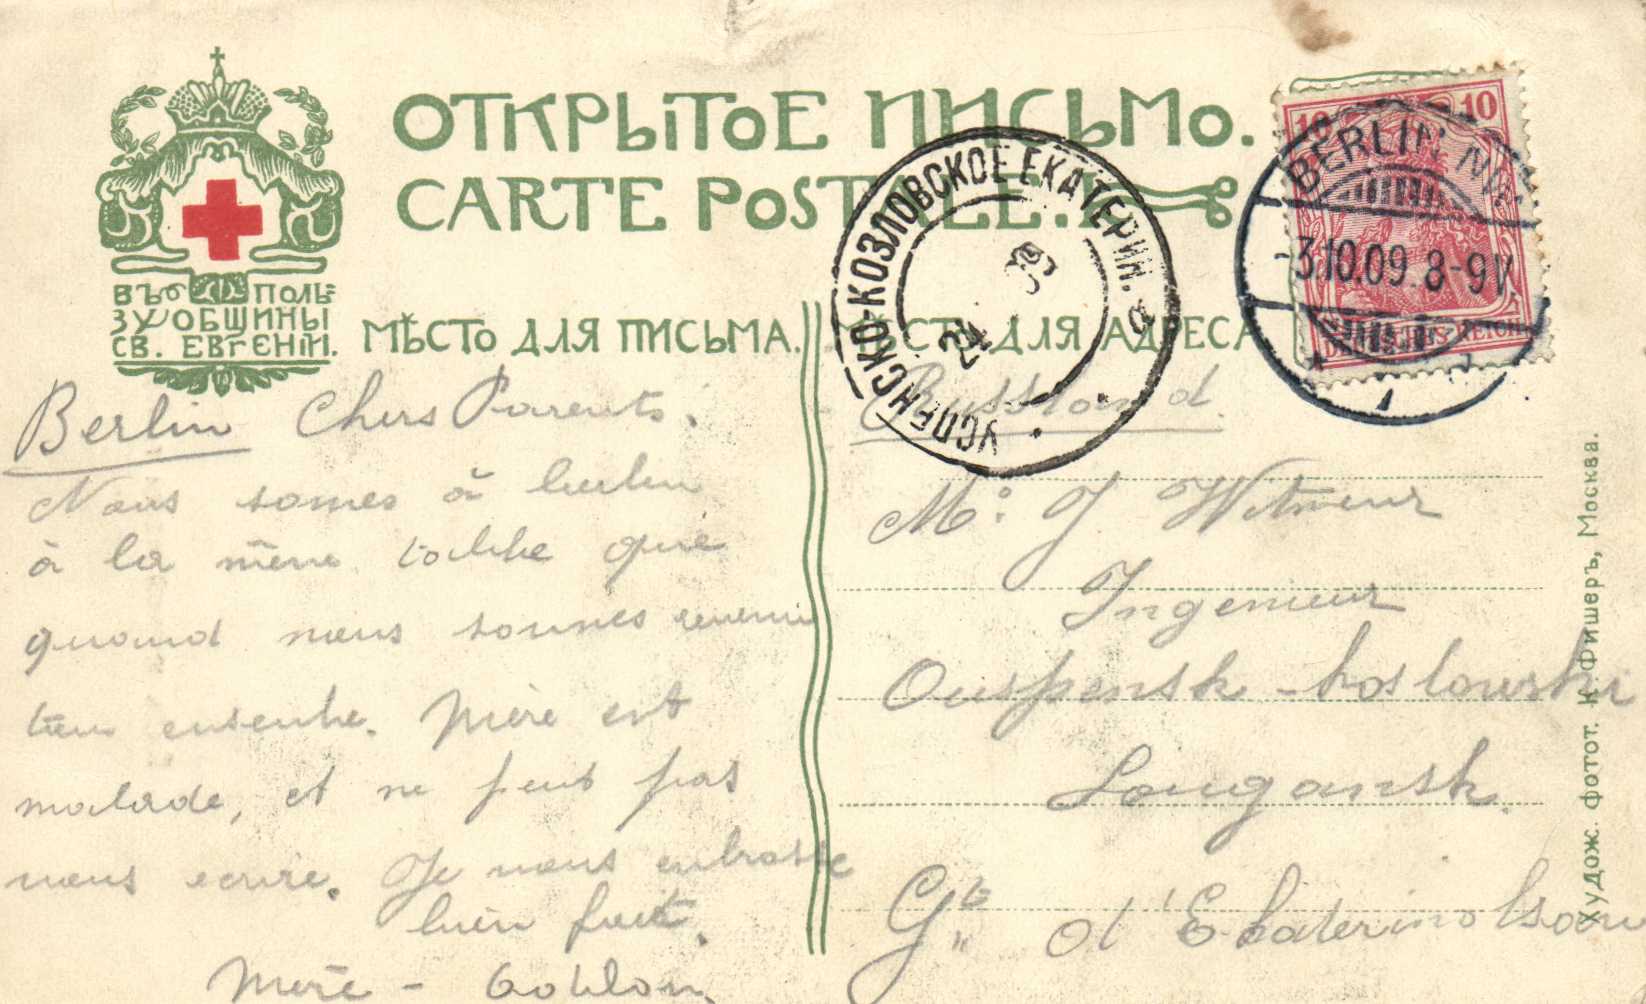 ОТКРЫТОЕ ПИСЬМО.
CARTE POSTALE.
ВЪ ПОЛЬ
ЗУ ОБЩИНЫ
СВ. ЕВГЕНІИ.
МѢСТО ДЛЯ ПИСЬМА.
МѢСТО ДЛЯ АДРЕСА
УСПЕНСКО-КОЗЛОВСКОЕ ЕКАТЕРИН.
24 09
10 10
DEUTSCHES REICH
BERLIN NW.
-3.10.09.8-9V.
Berlin Chers Parents.
Nous somes à berlin
à la même table que
quand nous sommes
ensenbe. Mère est
malade, et ne peut pas
vous ecrire. Je vous enbrasse
bien fort.
Mère -
Russland.
Mr. J Witmeur
Ingenieur
Ouspensk-koslowski
Lougansk.
Gt d'Ekaterinolsaw
Худож. фотот. К. Фишеръ, Москва.